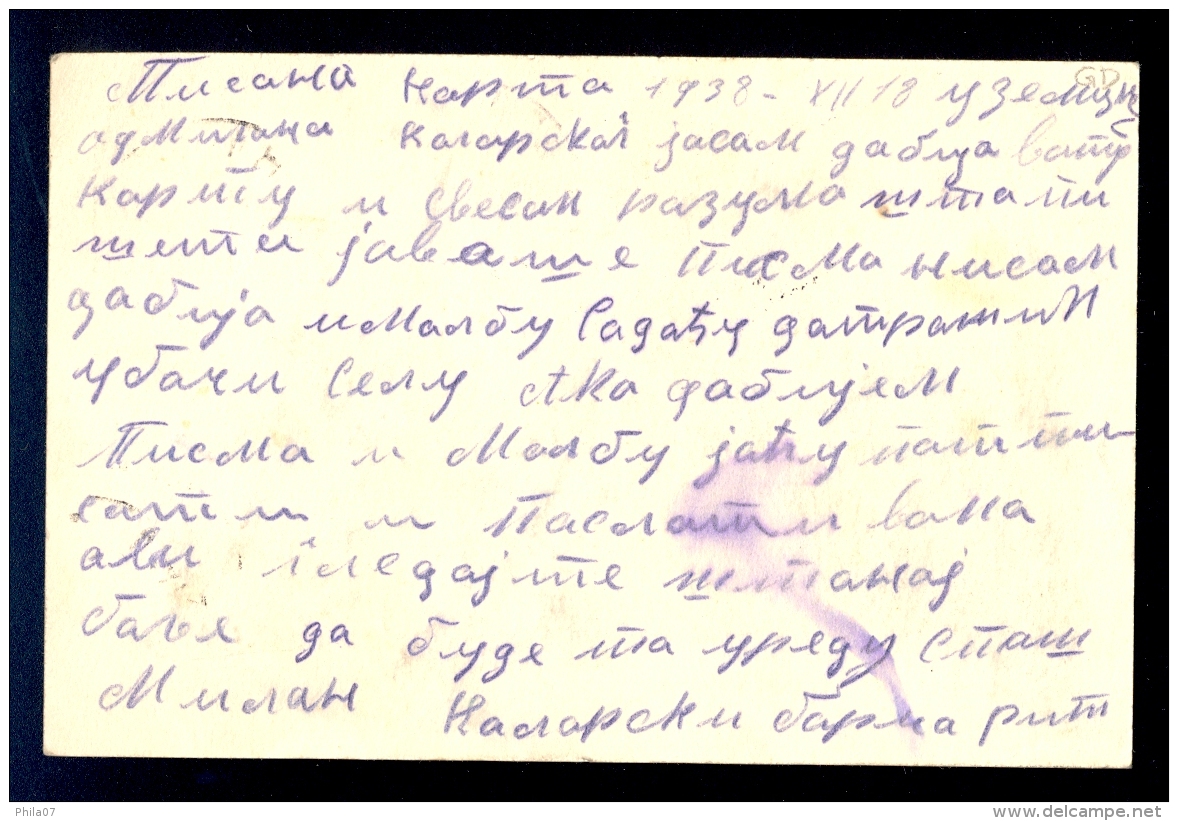 Писана Карта 1938 - XII 18 у земун
од Милана Каларског јасам дабија вашу
Карту и свесан разума штами
шети јаваше писма нисам
дабија и малбу Садаћу датражим
у бачи Селу Ака дабијем
Писма и Малбу јаћу пашпи
сати и Паслати вама
али гледајте штанај
баље да буде та уреду Спаш
Милан Каларски барча рит
Phila07
www.delcampe.net